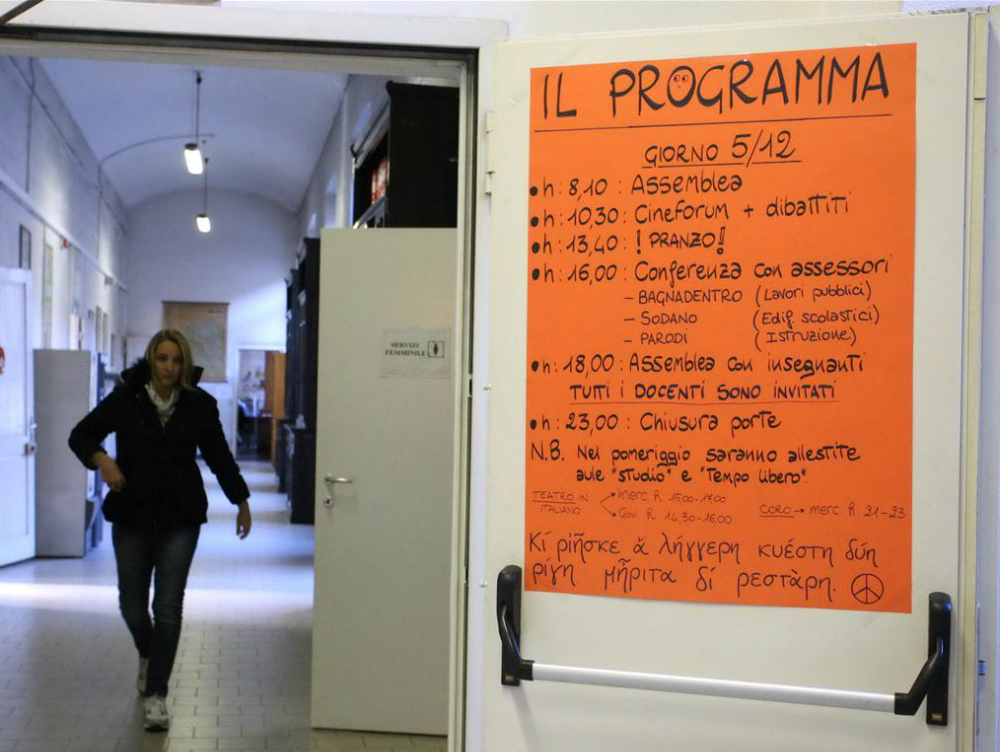 IL PROGRAMMA
GIORNO 5/12
• h: 8,10 : Assemblea
• h: 10,30 : Cineforum + dibattiti
• h: 13,40 : ! PRANZO !
• h: 16,00 : Conferenza con assessori
- BAGNADENTRO (Lavori pubblici)
- SODANO (Edif. scolastici)
- PARODI (Istruzione)
• h: 18,00 : Assemblea con insegnanti
TUTTI I DOCENTI SONO INVITATI
• h: 23,00 : Chiusura porte
N.B. Nel pomeriggio saranno allestite
aule "studio" e "Tempo libero".
TEATRO IN ITALIANO → merc h. 15,00-17,00
→ Giov h. 14,30-16,00
CORO → merc h. 21-23
Κί ριῆσκε ἄ λήγγερη κυέστη δύη
ρίγη μῆριτα δί ρεστάρη.
SERVIZI
FEMMINILE